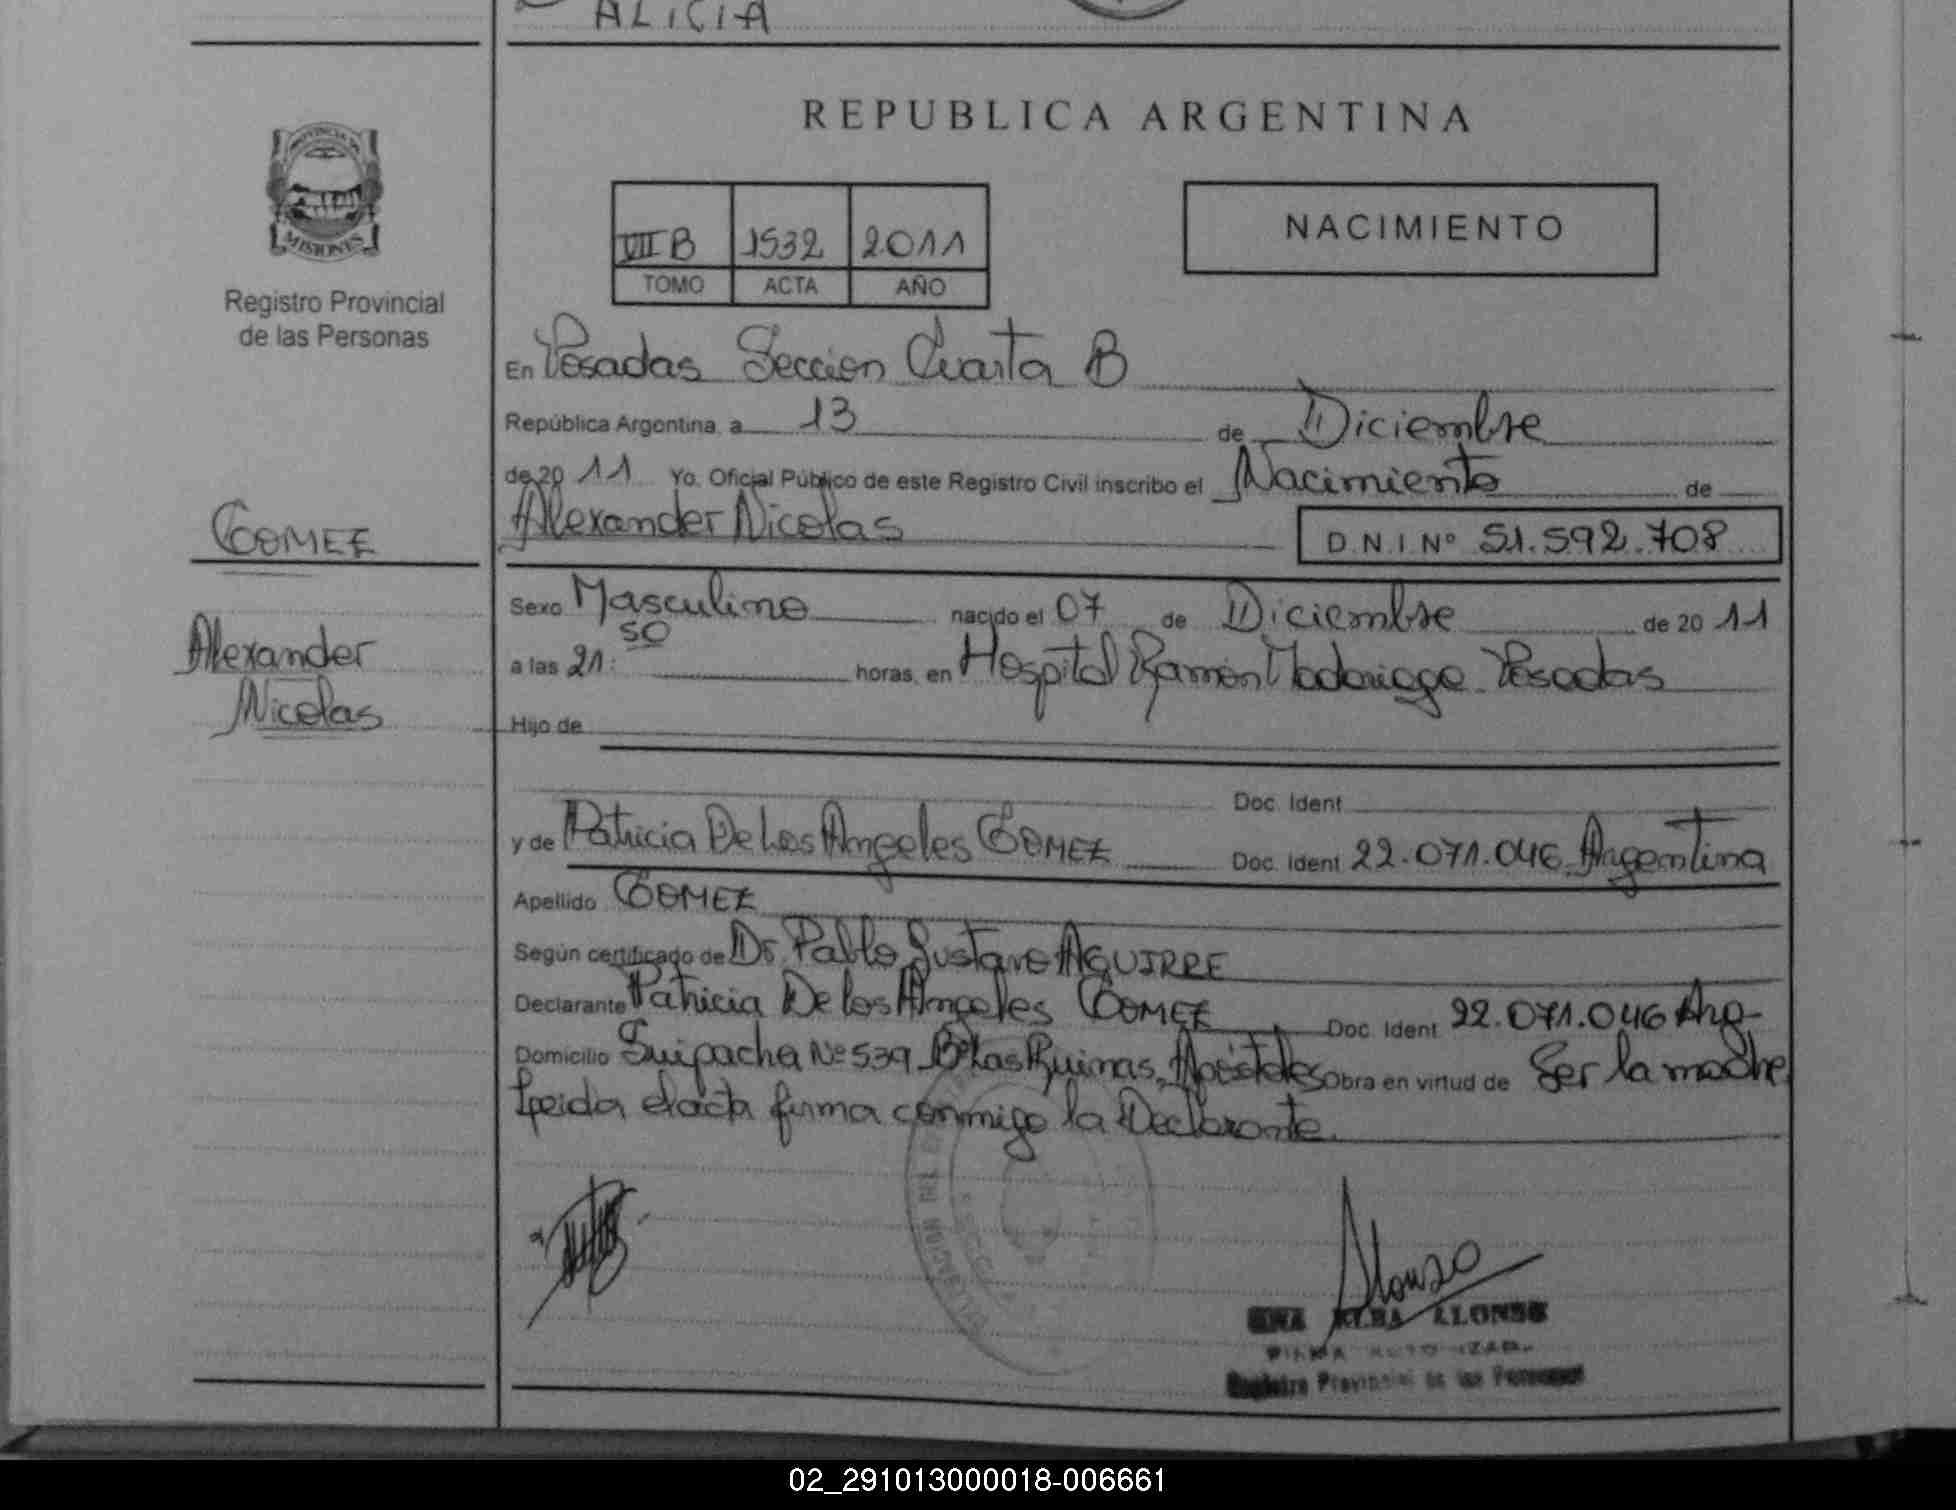 ALICIA
REPUBLICA ARGENTINA
PROVINCIA DE
MISIONES
Registro Provincial
de las Personas
VII B 1532 2011
TOMO ACTA AÑO
NACIMIENTO
En Posadas Seccion Cuarta B
República Argentina, a 13 de Diciembre
de 20 11 Yo, Oficial Público de este Registro Civil inscribo el Nacimiento de
Alexander Nicolas D.N.I. Nº 51.592.708
GOMEZ
Alexander
Nicolas
Sexo Masculino nacido el 07 de Diciembre de 20 11
a las 21:50 horas, en Hospital Ramón Madariaga Posadas
Hijo de
Doc. Ident.
y de Patricia De Los Angeles GOMEZ Doc. Ident. 22.071.046 Argentina
Apellido GOMEZ
Según certificado de Dr. Pablo Gustavo AGUIRRE
Declarante Patricia De los Angeles GOMEZ Doc. Ident. 22.071.046 Arg
Domicilio Suipacha Nº 539 Bº Las Ruinas, Apóstoles Obra en virtud de Ser la madre
Leida el acta firma conmigo la Declarante.
Alonso
ALBA ALONSO
FIRMA AUTORIZADA
Registro Provincial de las Personas
02_291013000018-006661